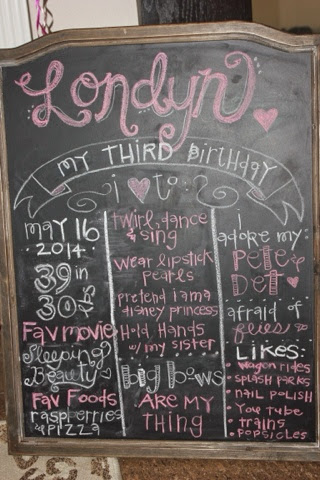 Londyn
my THIRD BirtHday
i ♥ to:
may 16
• 2014 •
39 in
30 lbs
Fav movie
Sleeping
Beauty
Fav Foods
raspberries
& pizza
twirl, dance
& sing
wear lipstick
pearls
pretend i am a
disney princess
Hold Hands
w/ my sister
big bows
ARE MY
THING
I
adore my:
Pete &
Det ♥
afraid of
flies
Likes:
• wagon rides
• splash parks
• nail polish
• You tube
• trains
• popsicles